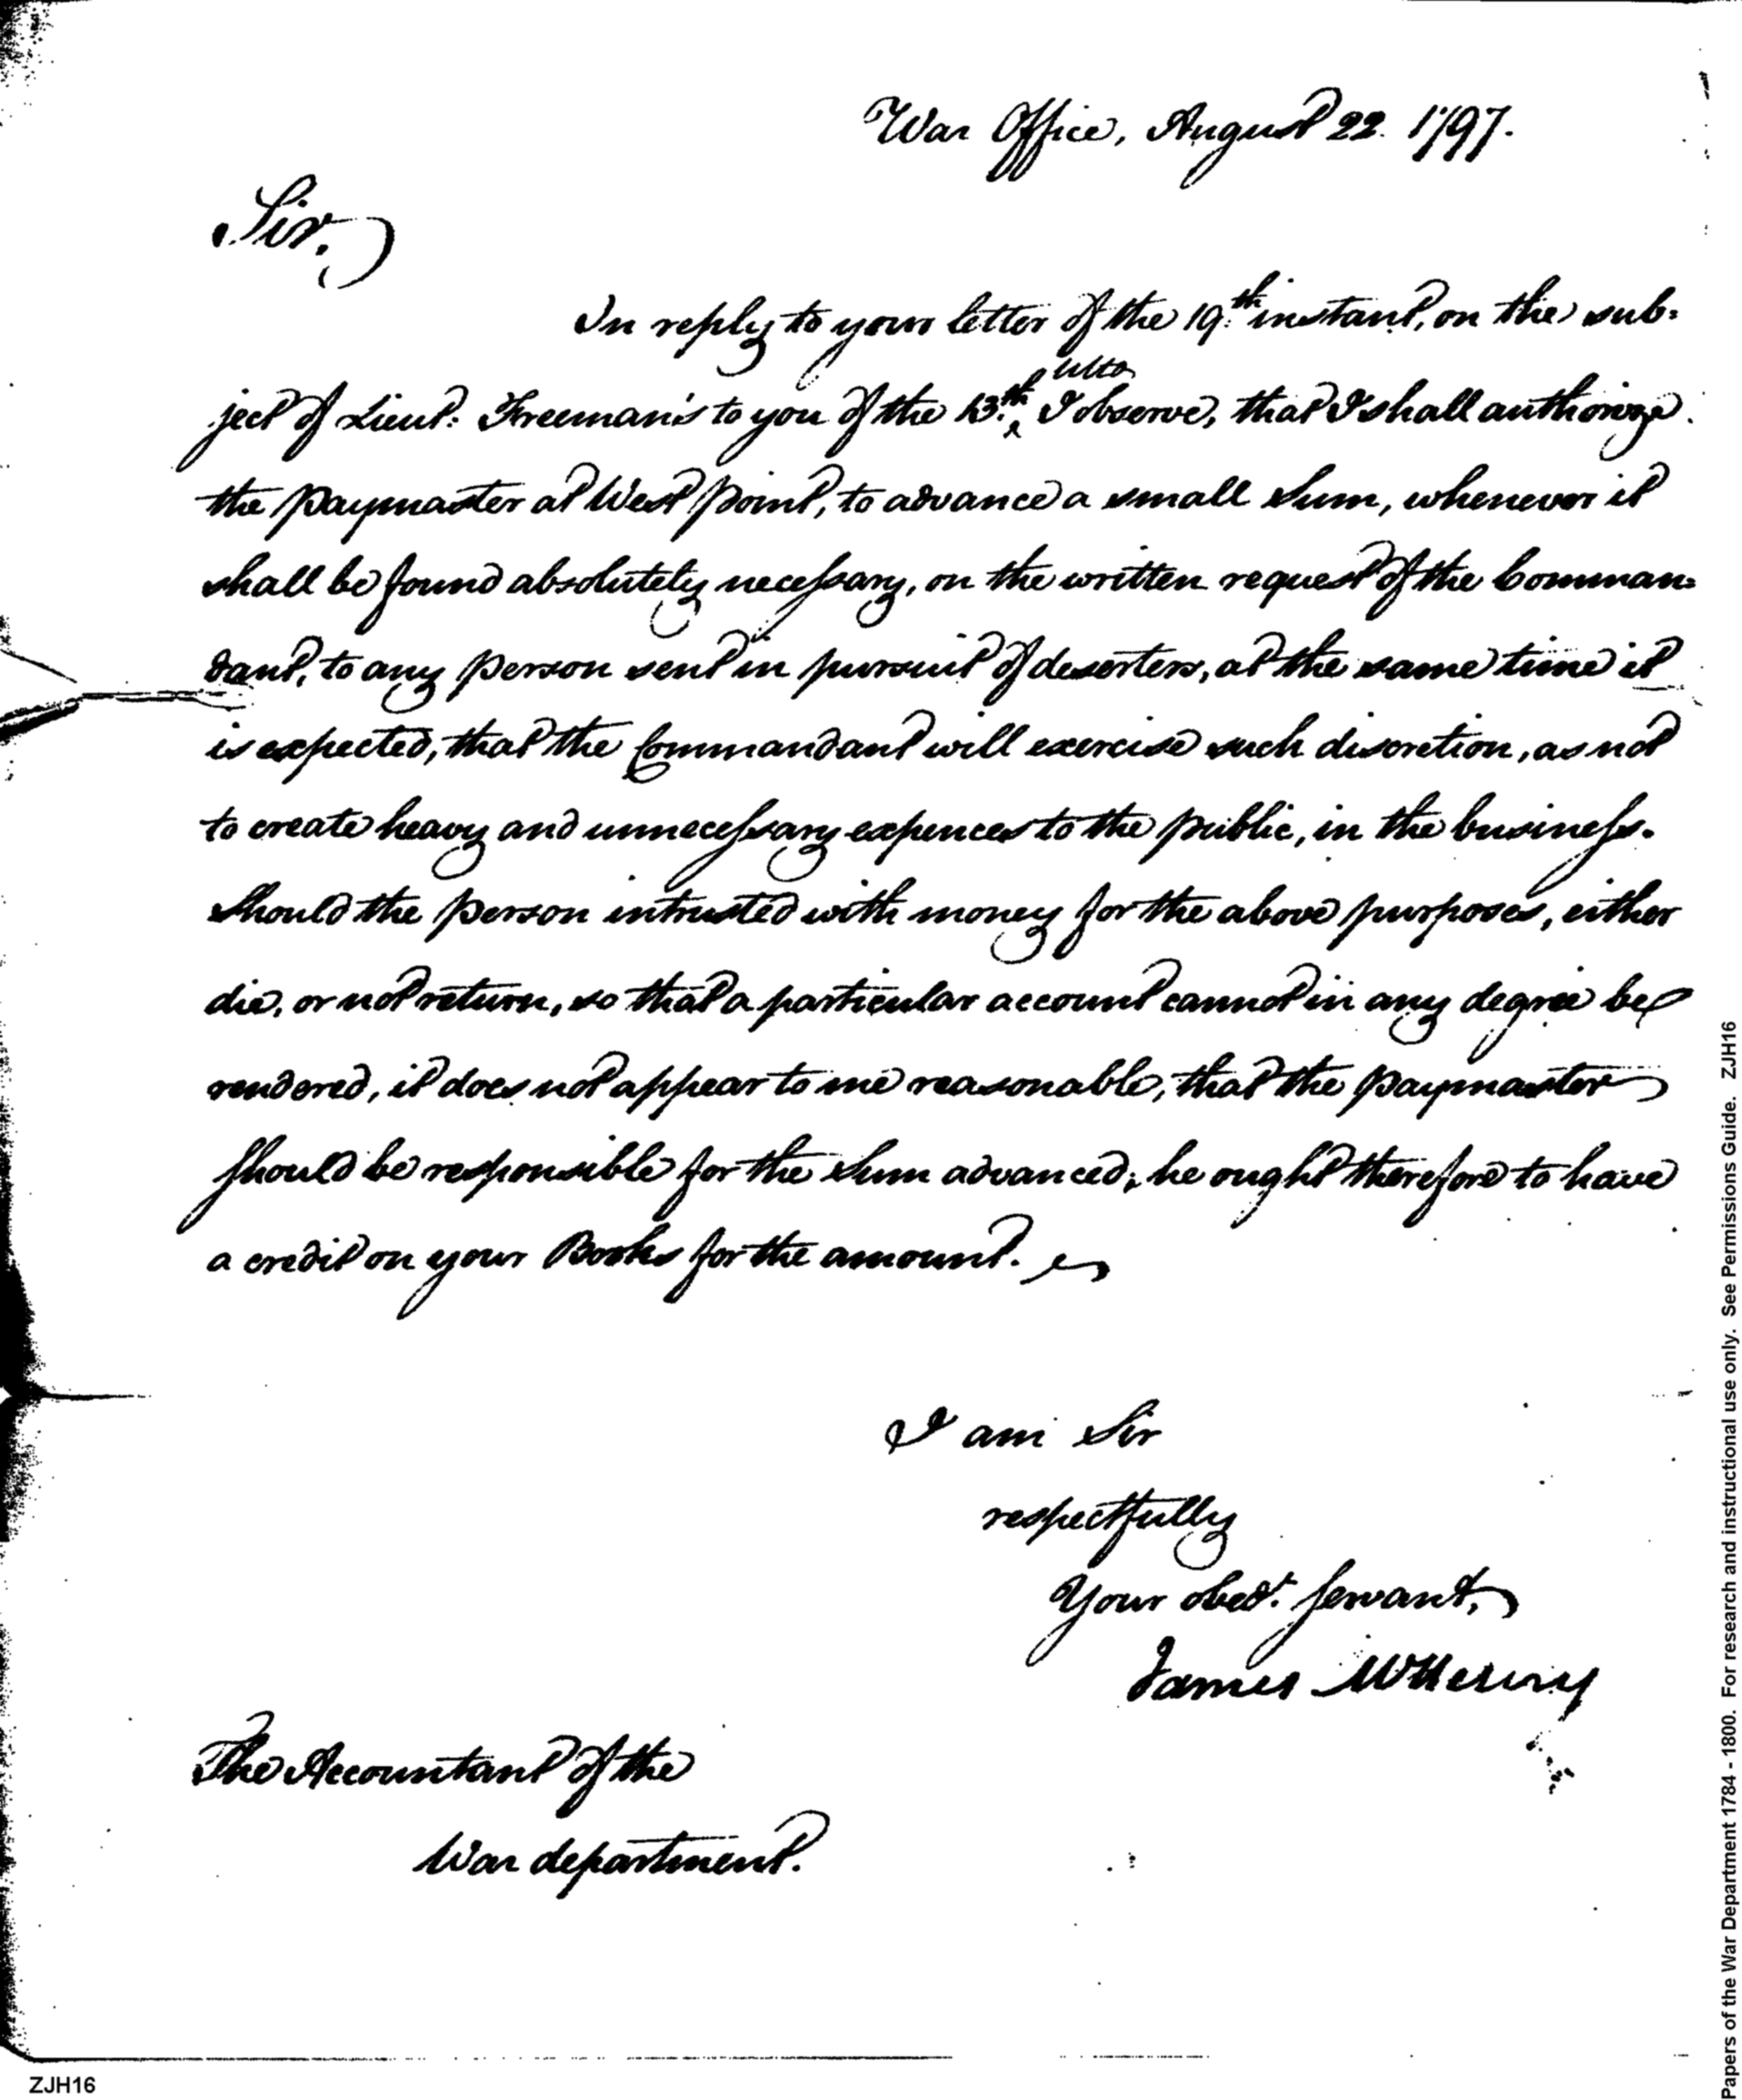 War Office, August 22. 1797.
Sir,
In reply to your letter of the 19.th instant, on the sub=
ulto
ject of Lieut: Freeman's to you of the 13.th ^ I observe, that I shall authorize
the Paymaster at West Point, to advance a small Sum, whenever it
shall be found absolutely necessary, on the written request of the Comman=
dant, to any person sent in pursuit of deserters, at the same time it
is expected, that the Commandant will exercise such discretion, as not
to create heavy and unnecessary expences to the public, in the business.
Should the person intrusted with money for the above purposes, either
die, or not return, so that a particular account cannot in any degree be
rendered, it does not appear to me reasonable, that the Paymaster
should be responsible for the Sum advanced; he ought therefore to have
a credit on your Books for the amount.
I am Sir
respectfully
Your obed.t Servant,
James McHenry
The Accountant of the
War department.
ZJH16
Papers of the War Department 1784 - 1800. For research and instructional use only. See Permissions Guide. ZJH16